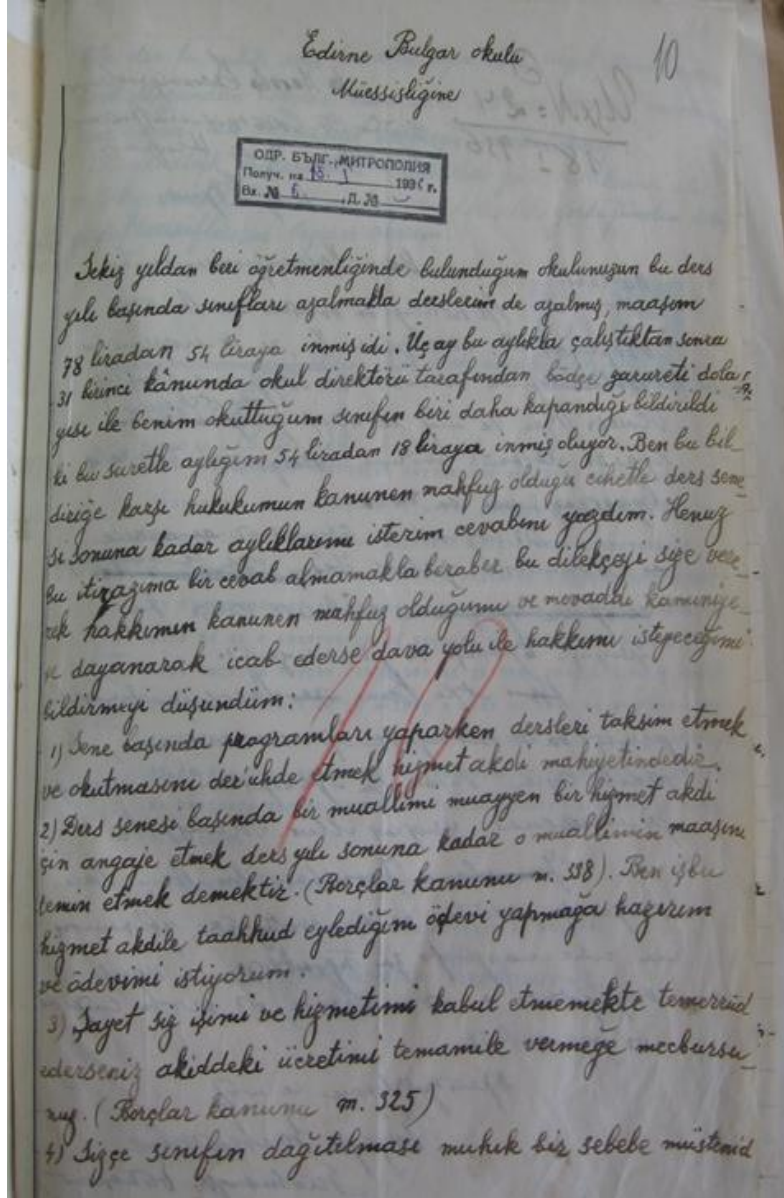 Edirne Bulgar okulu
Müessisliğine
10
ОДР. БЪЛГ. МИТРОПОЛИЯ
Получ. на 18. I 1936 г.
Вх. № 6. Д. №
Sekiz yıldan beri öğretmenliğinde bulunduğum okulunuzun bu ders
yılı başında sınıfları azalmakla derslerim de azalmış, maaşım
78 liradan 54 liraya inmiş idi. Üç ay bu aylıkla çalıştıktan sonra
31 birinci kânunda okul direktörü tarafından bödçe zarureti dola
yısı ile benim okuttuğum sınıfın biri daha kapandığı bildirildi
ki bu suretle aylığım 54 liradan 18 liraya inmiş oluyor. Ben bu bil-
diriğe karşı hukukumun kanunen mahfuz olduğu cihetle ders sene-
si sonuna kadar aylıklarımı isterim cevabını yazdım. Henuz
bu itirazıma bir cevab almamakla beraber bu dilekçeyi size vere-
rek hakkımın kanunen mahfuz olduğunu ve mevaddı kanuniye-
ye dayanarak icab ederse dava yolu ile hakkımı isteyeceğimi
bildirmeyi düşündüm:
1) Sene başında programları yaparken dersleri taksim etmek
ve okutmasını der'uhde etmek hizmet akdi mahiyetindedir.
2) Ders senesi başında bir muallimi muayyen bir hizmet akdi
için angaje etmek ders yılı sonuna kadar o muallimin maaşını
temin etmek demektir. (Borçlar kanunu m. 338). Ben işbu
hizmet akdile taahhud eylediğim ödevi yapmağa hazırım
ve ödevimi istiyorum.
3) Şayet siz işimi ve hizmetimi kabul etmemekte temerrüd
ederseniz akiddeki ücretimi temamile vermeğe mecbursu-
nuz. (Borçlar kanunu m. 325)
4) Sizçe sınıfın dağıtılması muhık bir sebebe müstenid